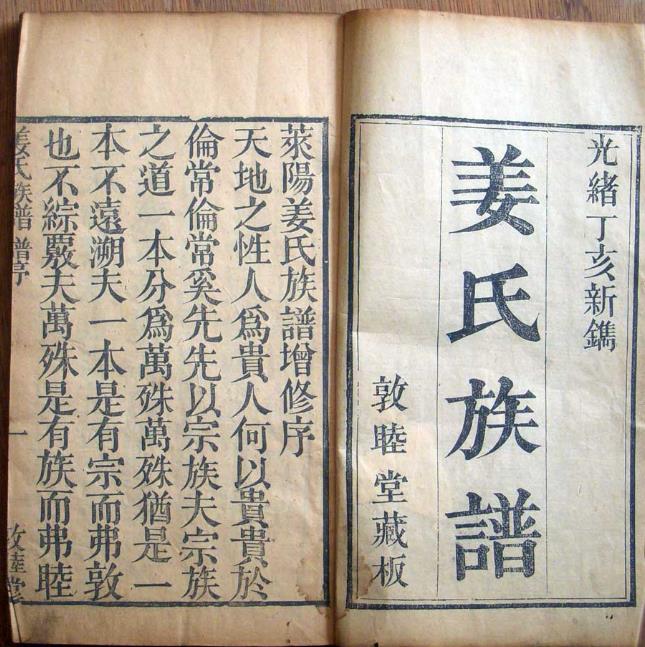 光緒丁亥新鐫
姜氏族譜
敦睦堂藏板
萊陽姜氏族譜增修序
天地之性人爲貴人何以貴貴於
倫常倫常奚先先以宗族夫宗族
之道一本分爲萬殊萬殊猶是一
本不遠溯夫一本是有宗而弗敦
也不綜覈夫萬殊是有族而弗睦
姜氏族譜 譜序 一 敦睦堂